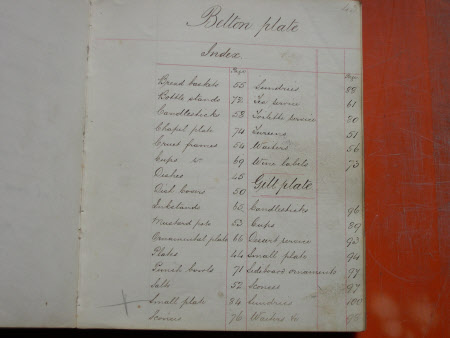 Belton plate
Index
Page
Bread baskets 55
Bottle stands 72
Candlesticks 58
Chapel plate 74
Cruet frames 54
Cups & 69
Dishes 45
Dish Covers 50
Inkstands 65
Mustard pots 53
Ornamental plate 66
Plates 44
Punch bowls 71
Salts 52
Small plate 84
Sconces 76
Page
Sundries 88
Tea service 61
Toilette service 80
Tureens 51
Waiters 56
Wine labels 73
Gilt plate
Candlesticks 96
Cups 89
Desert service 92
Small plate 94
Sideboard ornaments 99
Sconses 97
Sundries 100
Waiters &c